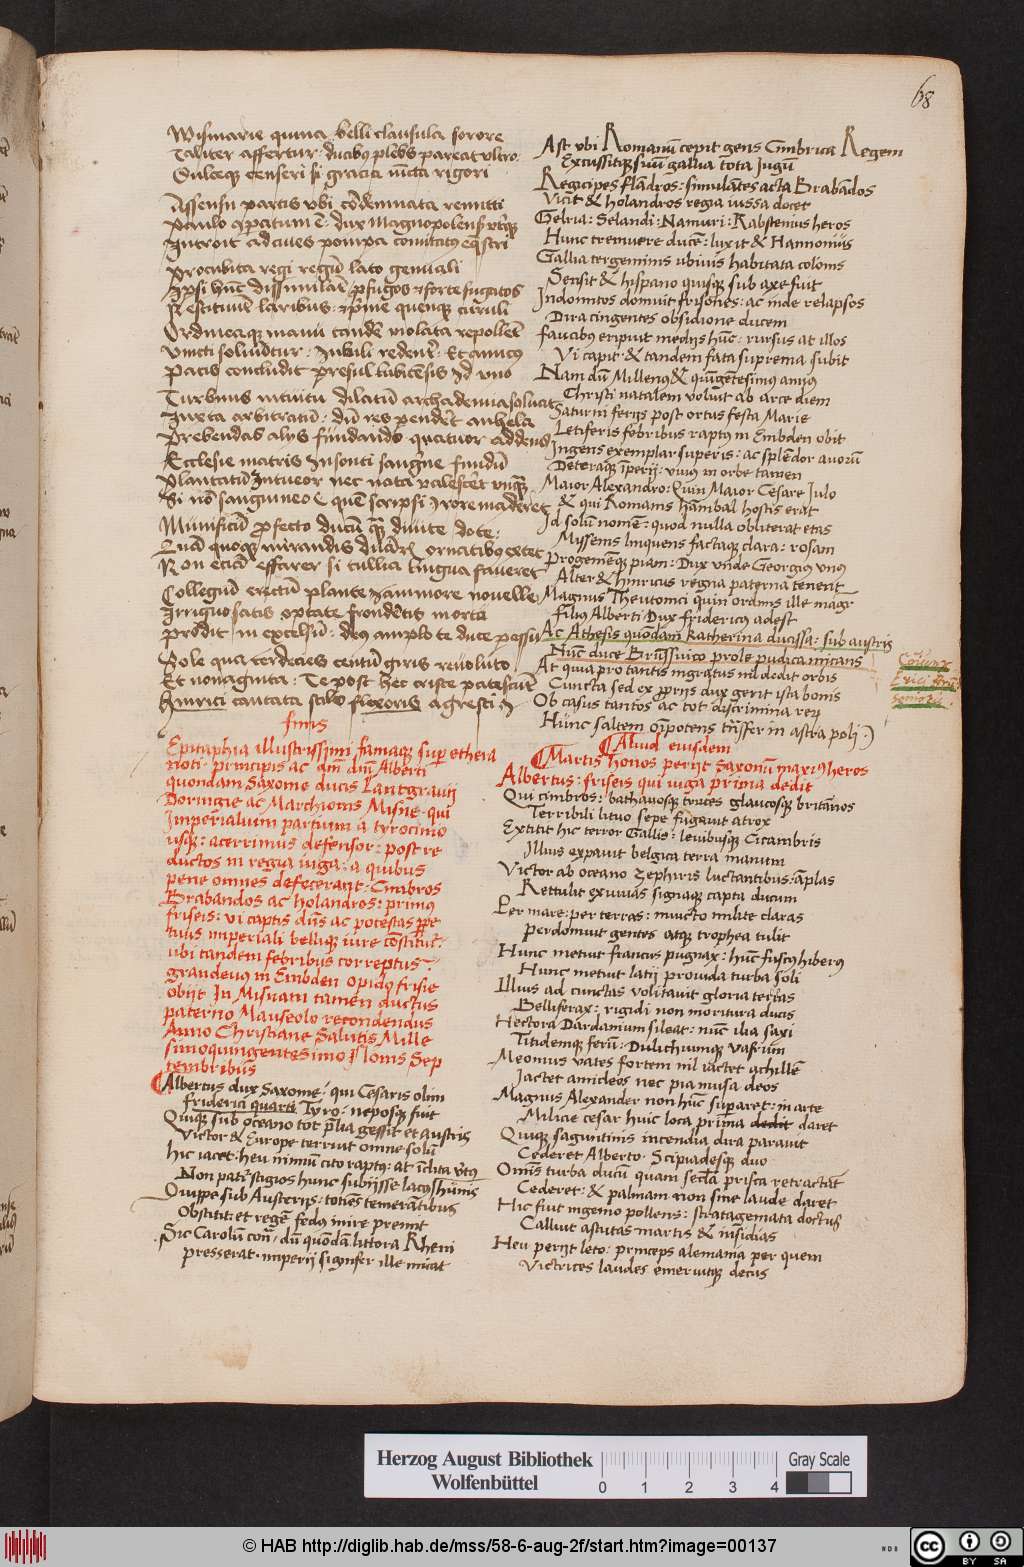 68
Wismarie quina belli clausula sorore
Taliter affertur: ducibus plebs pareat ultro
Dulceque censeri si gracia iuncta rigori
Assensu partis ubi cōdemnata remitti
Paulo
Introit ad ciues pompa comitatus eq̄stri
Procubita regi regū lato geniali
Ipsi hūc dissimilaē profugos & forte fugatos
Restituunt laribus:
manu tandē violata
Uincti soluūtur: Iubili
Pacis concludit presul lubicēsis Id uno
Turbinis intuitu dilatū archademia soluat
Iureta arbitratū: dū res pendēt anhela
Prebendas alijs fūndando quatuor addens
Ecclesie matris Insonti sangn̄e fundū
Plantatū Intueor nec nota
Si nō sanguineo ē quē scripsi rore maderet
Munificū profecto ducū dīuite dote:
ornatibus extet
Non etiā effarer si tullia lingua faueret
Collegiū erectū plante Iāmmore nouelle
Irriguo satis optate frondētis
prodit in excelsū: deus amplo te duce possit
Sole qua terdecies centū giris reuoluto
Et nonaginta: Te post hec criste
hinrici cantata stilo flexoris agresti
finis
Epitaphia illustrissimi famaque super ethera
noti: principis ac dn̄i Alberti
quondam Saxonie ducis Lantgrauij
Doringie ac Marchionis Misne: qui
Imperialium partium a tyrocinio
usque: acerrimus defensor: post re
ductos in regia iuga: a quibus
pene omnes defecerant: Cimbros
Brabandos ac holandros: primus
friseis: vi captis dn̄s ac potestas ppe
tuus imperiali bellique iure cōstitut᷑:
ubi tandem febribus correptus:
grandeuus in Embden opidо frisie
obijt In Misnam tamen ductus
paterno Mauseolo recondendus
Anno Christiane Salutis Mille
simoquingentesimo Nonis Sep
tembribus
Albertus dux Saxonie: qui Cesaris olim
friderici quarti Tyro: neposque fuit
Quique sub oceano tot plia gessit et austris
Victor & Europe terruit omne solū
hic iacet: heu nimiū cito raptus: at iclita
Non patr᷑ stigios hunc subijsse lacus
Quippe sub Austerijs: totiēs temerātibus
Obstitit: et regē feda inire premit
Sic Carolū dū quōdā littora Rheni
presserat: imperij signifer ille micat
Ast ubi Romanū cepit gens Cimbrica Regem
Excussitque suū gallia tota Jugū
Regicipes flādros: simulātes acta Brabādos
Vicit & holandros regia iussa docet
Gelria: Selandi: Namuri: Rabstenius heros
Hunc tremuere ducē: luxit & Hannonius
Gallia tergeminis ubiuis habitata colonis
Sensit & hispano quisque sub axe fuit
Indomitos domuit frisones: ac inde relapsos
Dira cingentes obsidione ducem
faucibus eripuit medijs hūc: rursus at illos
Vi capit & tandem fata suprema subit
Nam dū Millenus & quīgētesimus annus
Christi natalem voluit ab arce diem
Saturni ferijs post ortus festa Marie
Letiferis febribus raptus in Embden obit
Ingens exemplar superis: ac splēdor auorū
imperij: unus in orbe tamen
Maior Alexandro: Quin Maior Cesare Iulo
& qui Romanis hānibal hostis erat
Id solū nomē: quod nulla obliterat etas
Missenis linquens factaque clara: rosam
Progeniēque piam: Dux unde Georgius unus
Alter & hinricus regna paterna tenent
Magnus Theutonici quin ordinis ille magr᷑
filius Alberti Dux fridericus adest
Ac Athesis quōdam katherina ducissa: sub austris
Nūc duce Brūsuico prole pudica micans
At quia pro tantis ingratus nil dedit orbis
Cuncta sed ex pprijs dux gerit ista bonis
Ob casus tantos ac tot discrimina rerum
Hūnc saltem oīpotens trāsfer in astra poli:
Coniunx
Erici
Aliud eiusdem
Martis honos perijt Saxonū maximus heros
Albertus: friseis qui iuga prima dedit
Qui cimbros: bathauosque truces glaucosque britānos
Terribili lituo sepe fugauit atrox
Extitit hic terror Gallis: leuibusque Cicambris
Illius expauit belgica terra manum
Victor ab oceano Zephiris luctantibus: āplas
Rettulit exuuias signaque capta ducum
Per mare: per terras: inuicto milite claras
Perdomuit gentes atque trophea tulit
Hunc metuit francus pugnax: hūc fuscus hiberus
Hunc metuit latij prouida turba soli
Illius ad cunctas volitauit gloria terras
Belliferax: rigidi non moritura ducis
Hectora Dardanium sileat: nūc ilia saxi
Titidemque ferū: Dulichiumque vafrum
Meonius vates fortem nil iactet achillē
Iactet amideos nec pia musa deos
Magnus Alexander non hūc superaret: in arte
Milicie cesar huic loca prima dedit daret
Quique saguntinis incendia dira parauit
Cederet Alberto: Scipiadesque duo
Omīs turba ducū quam secla prisca retractāt
Cederet: & palmam non sine laude daret
Hic fuit ingenio pollens: stratagemata doctus
Calluit astutas martis & insidias
Heu perijt leto: princeps alemania per quem
Victrices laudes emeruitque decus
Herzog August Bibliothek
Wolfenbüttel
0 1 2 3 4
Gray Scale
© HAB http://diglib.hab.de/mss/58-6-aug-2f/start.htm?image=00137
cc BY SA